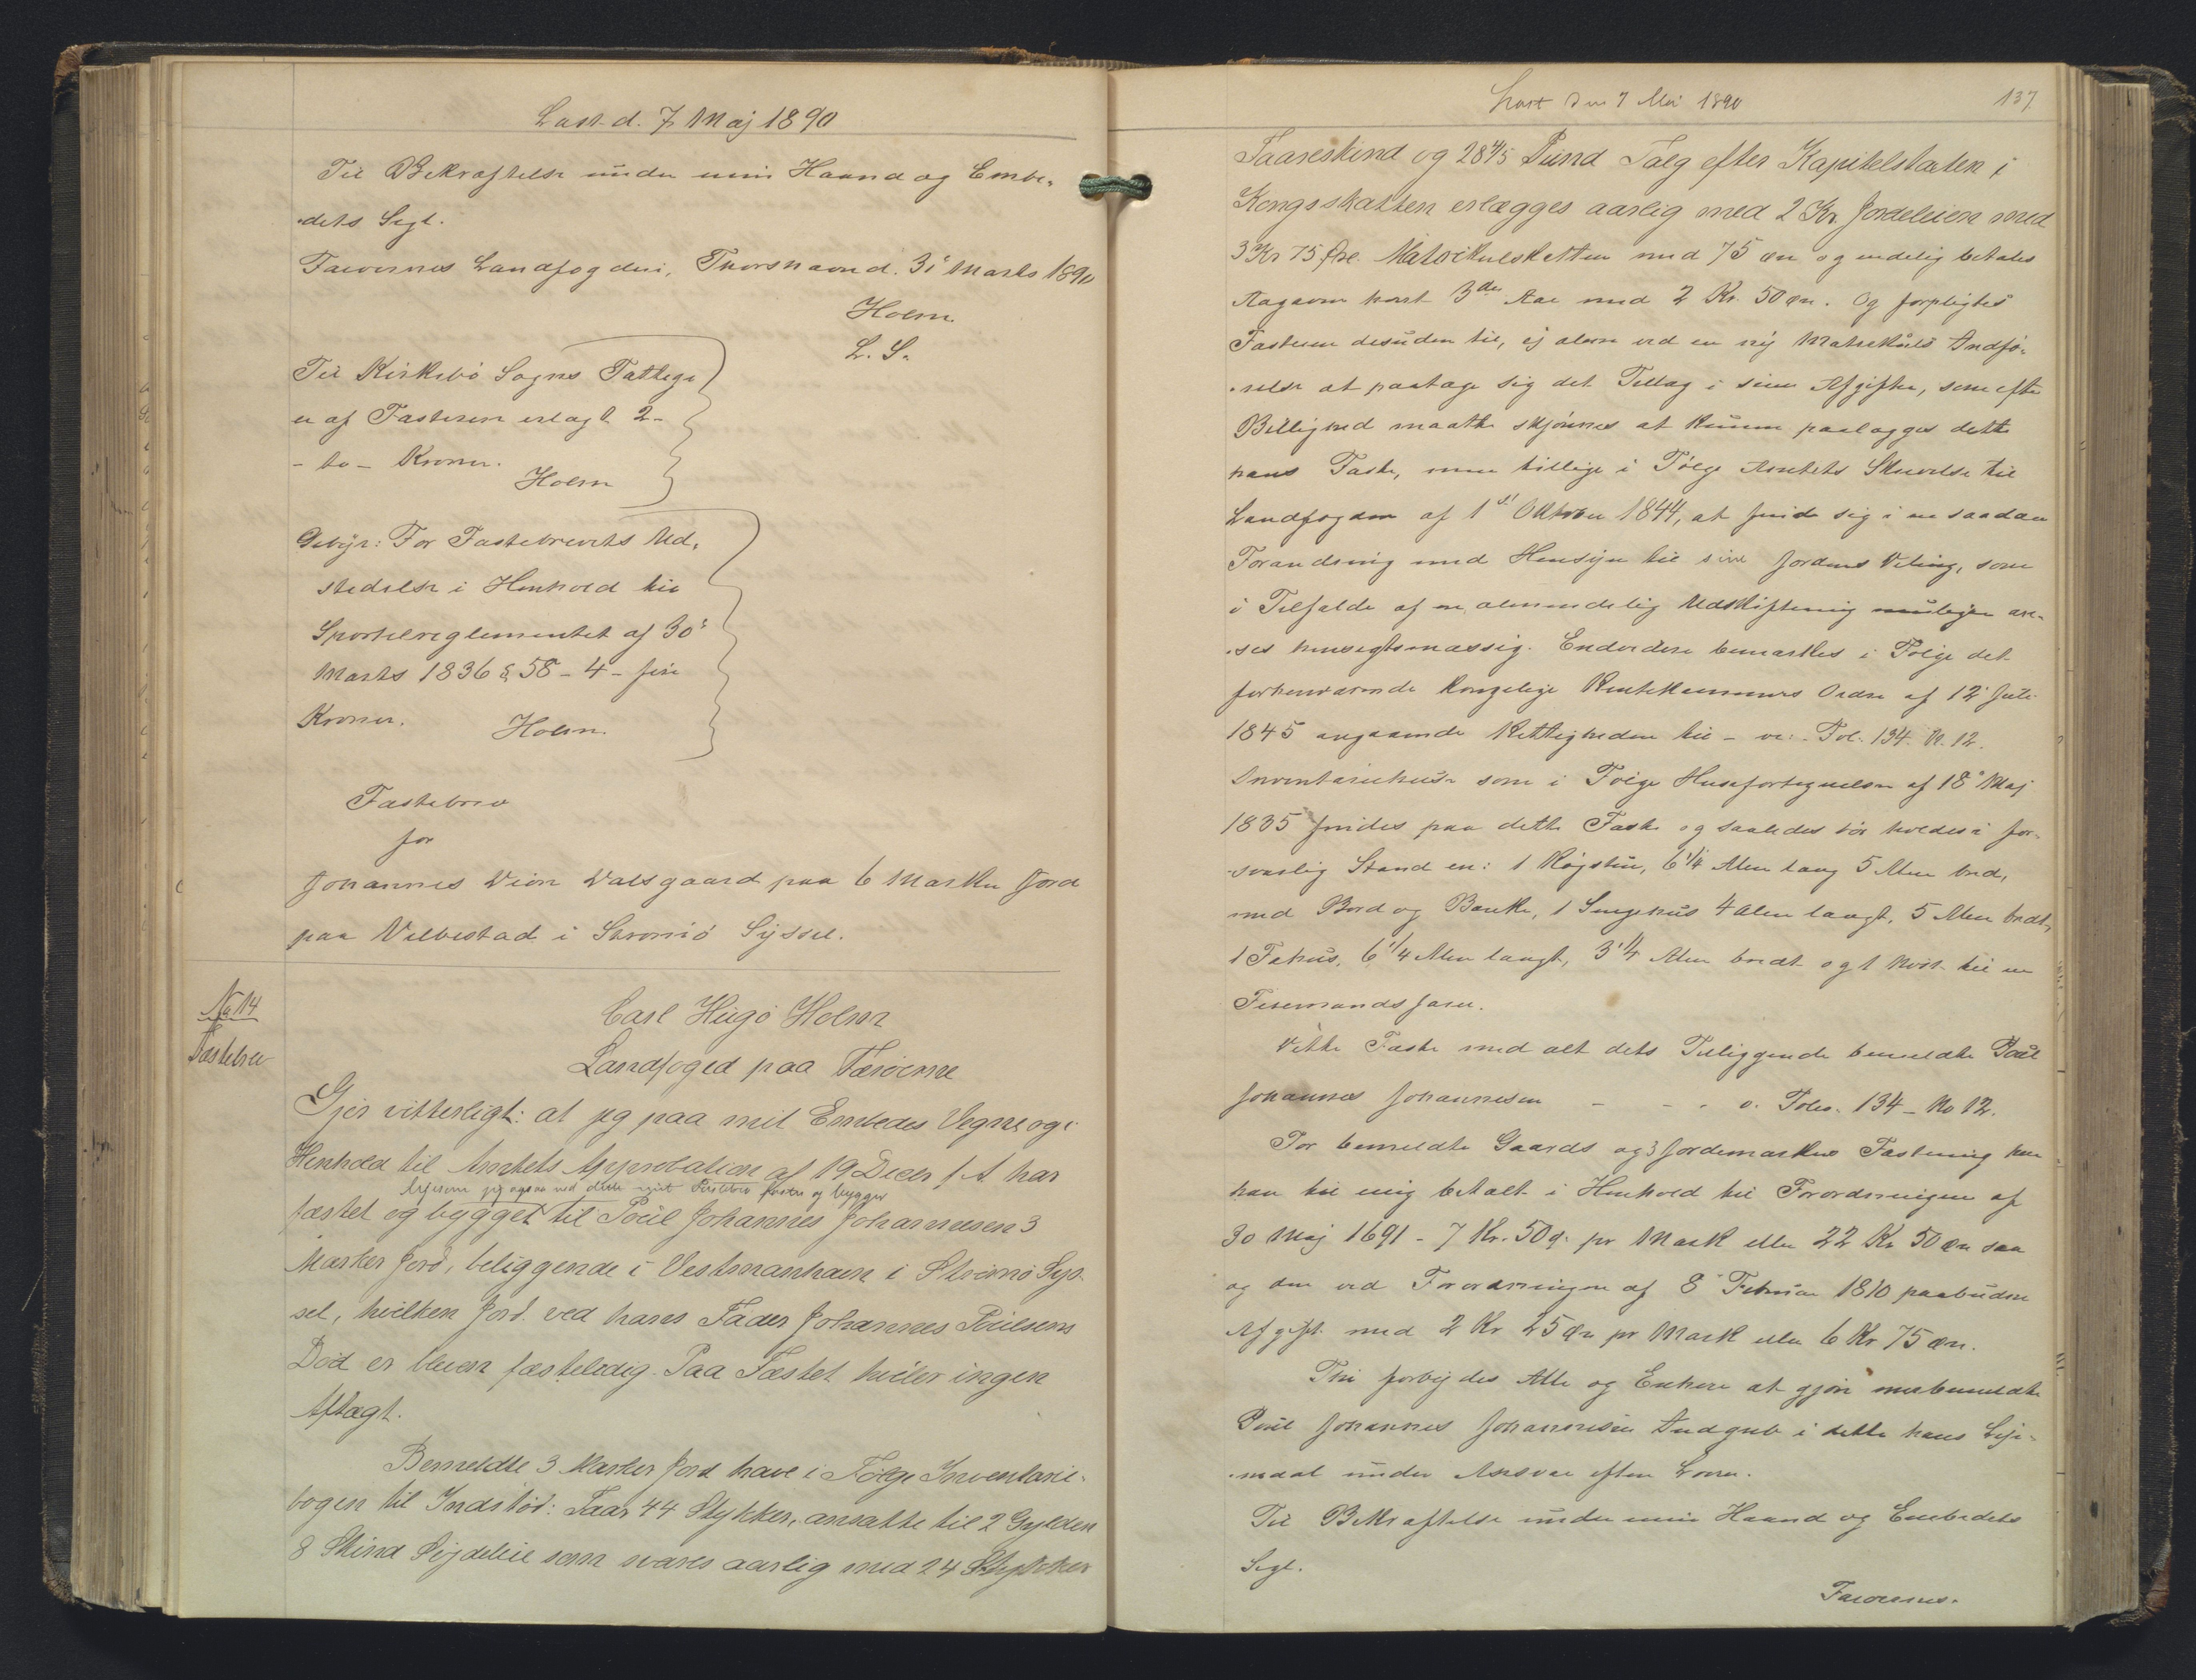 Læst d. 7 Maj 1890
Til Bekræftelse under min Haand og Embe-
dets Segl.
Færøernes Landfogderi, Thorshavn d. 31 Marts 1890
Holm.
L. S.
Til Kirkebø Sogns Fattige
er af Fæsteren erlagt 2-
- to - Kroner.
Holm
Gebyr: For Fæstebrevets Ud-
stedelse i Henhold til
Sportelreglementet af 30'
Marts 1836 § 58 - 4 - fire
Kroner.
Holm.
Fæstebrev
for
Johannes Dion Dalsgaard paa 6 Marker Jord
paa Velbestad i Strømø Syssel.
No 14
Fæstebrev
Carl Hugo Holm
Landfoged paa Færøerne
Gjør vitterligt: at jeg paa mit Embedes Vegne og i
Henhold til Amtets Approbation af 19 Decbr f. A. har
ligesom jeg ogsaa ved dette mit Fæstebrev fæster og bygger
fæstet og bygget til Poul Johannes Johannesen 3
Marker Jord, beliggende i Vestmanhavn i Strømø Sys-
sel, hvilken Jord ved hans Fader Johannes Poulsens
Død er bleven fæsteledig. Paa Fæstet hviler ingen
Aftægt.
Bemeldte 3 Marker Jord have i Følge Inventarie-
bogen til Indstød: Faar 44 Stykker, ansatte til 2 Gylden
8 Skind Søjdeleie som svares aarlig med 24 Stykker
Læst den 7 Mai 1890
137
Faareskind og 28 4/5 Pund Talg efter Kapitelstaxten i
Kongsskatten erlægges aarlig med 2 Kr. Jordeleien med
3 Kr 75 Øre. Matrikulskatten med 75 Øre og endelig betales
Aagaven hvert 3die Aar med 2 Kr. 50 Øre. Og forpligtes
Fæsteren desuden til, ej alene ved en ny Matrikuls Indfø-
relse at paatage sig det Tillæg i sine Afgifter, som efter
Billighed maatte skjønnes at kunne paalægges dette
hans Fæste, men tillige i Følge Amtets Skrivelse til
Landfogden af 1st Oktober 1844, at finde sig i en saadan
Forandring med Hensyn til sine Jorders Deling, som
i Tilfælde af en almindelig Udskiftning muligen an-
ses hensigtsmæssig. Endvidere bemærkes i Følge det
forhenværende kongelige Rentekammers Ordre af 12' Juli
1845 angaaende Rettigheden til - v: - Fol. 134. N. 12.
Inventariehuse som i Følge Husefortegnelsen af 18' Maj
1835 findes paa dette Fæste og saaledes bør holdes i for-
svarlig Stand er: 1 Røgstue, 6 1/4 Alen lang 5 Alen bred,
med Bord og Bænke, 1 Sengehus 4 Alen langt, 5 Alen bredt,
1 Fæhus, 6 1/4 Alen langt, 3 1/4 Alen bredt og 1 Nøst til en
Firemandsfarer.
Dette Fæste med alt dets Tilliggende bemeldte Poul
Johannes Johannesen - - - v. Folio. 134 - No 12.
For bemeldte Gaards og 3 Jordemarkers Fæstning har
han til mig betalt i Henhold til Forordningen af
30 Maj 1691 - 7 Kr. 50 Ø. pr Mark eller 22 Kr 50 Øre saa
og den ved Forordningen af 8' Februar 1810 paabudne
Afgift med 2 Kr 25 Øre pr Mark eller 6 Kr 75 Øre.
Thi forbydes Alle og Enhver at gjøre merbemeldte
Poul Johannes Johannesen Indgreb i dette hans Leje-
maal under Ansvar efter Loven.
Til Bekræftelse under min Haand og Embedets
Segl.
Færøernes-